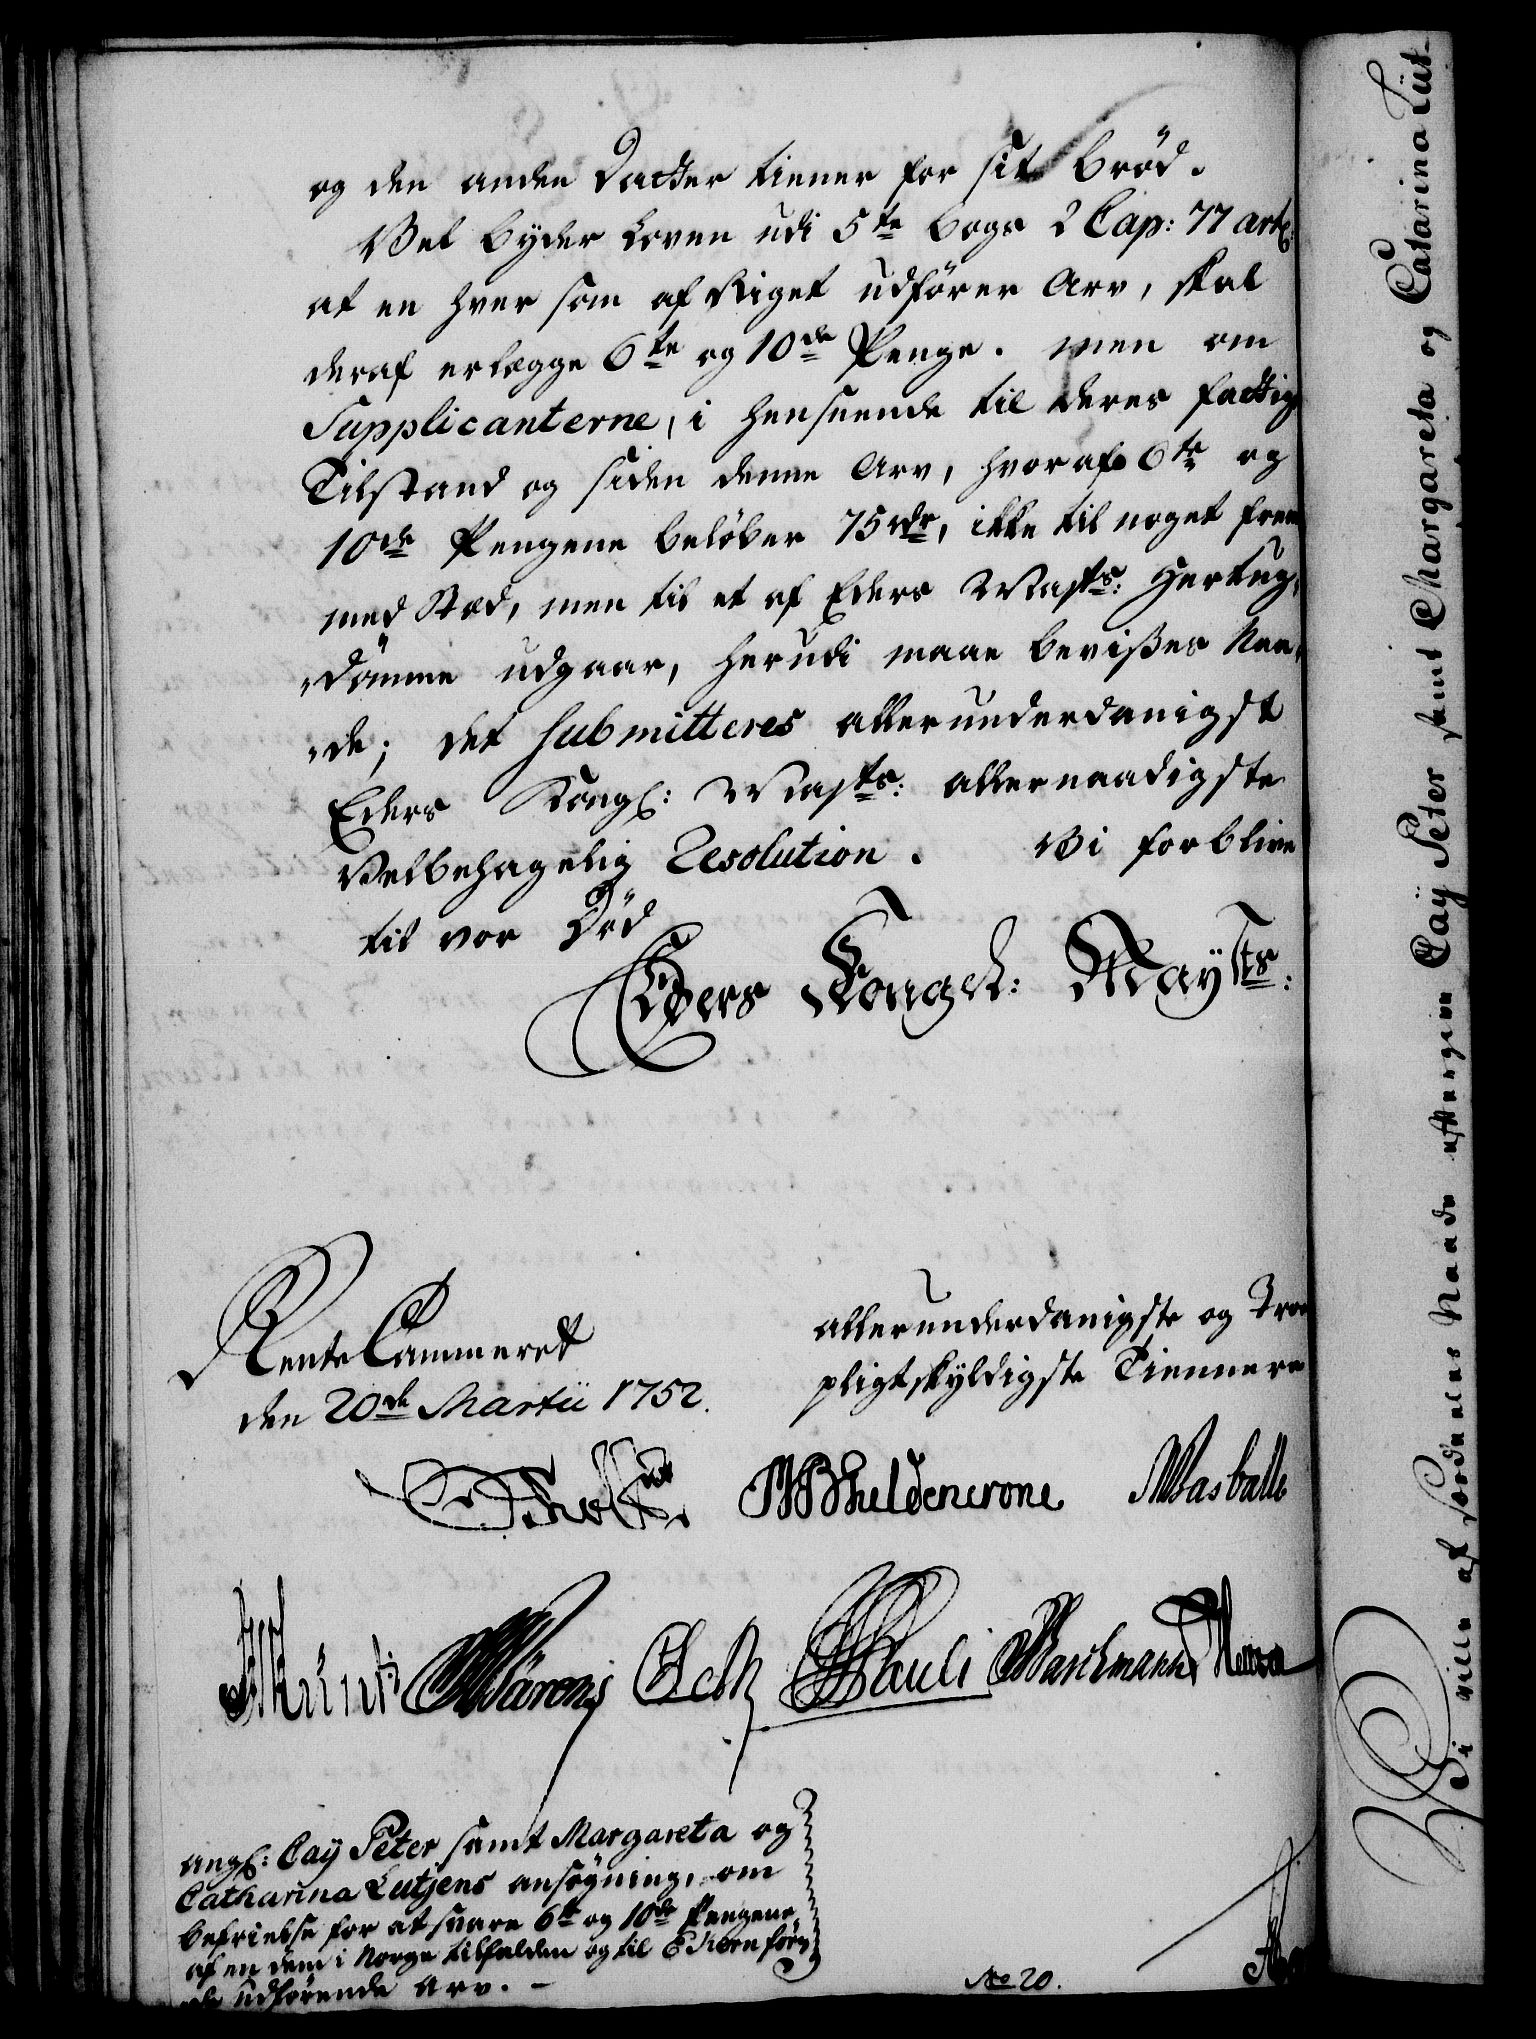 og den anden Datter tiener for sit Brød.
Vel byder Loven udi 5te Bogs 2 Cap: 77 art:
at en hver som af Riget udfører Arv, skal
deraf erlægge 6te og 10de Penge. men om
Supplicanterne, i henseende til deres fattige
Tilstand og siden denne Arv, hvoraf 6te og
10de Pengene beløber 75 rdr, ikke til noget frem
med Stæd, men til et af Eders Maysts: Hertug,
„dømme udgaar, herudi maae bevises Naa„
„de; det submitteres allerunderdanigst
Eders Kongl: Maysts: allernaadigste
Velbehagelig Resolution. Vi forblive
til vor Død
Eders Kongel: Maysts:
RenteCammeret
den 20de Martii 1752.
allerunderdanigste og Troe
pligtskyldigste Tiennere
Holst W Gyldencrone Masballe
Wärens Pauli Marschmann
angl: Caÿ Peter samt Margareta og
Catharina Lutjens ansøgning, om
befrielse for at svare 6te og 10de Pengene
af en dem i Norge tilfalden og til Ekernförd
udførende Arv. –
No 20.
Vi ville af særdeles Naade eftergive Caÿ Peter samt Margareta og Catarina Lüt-